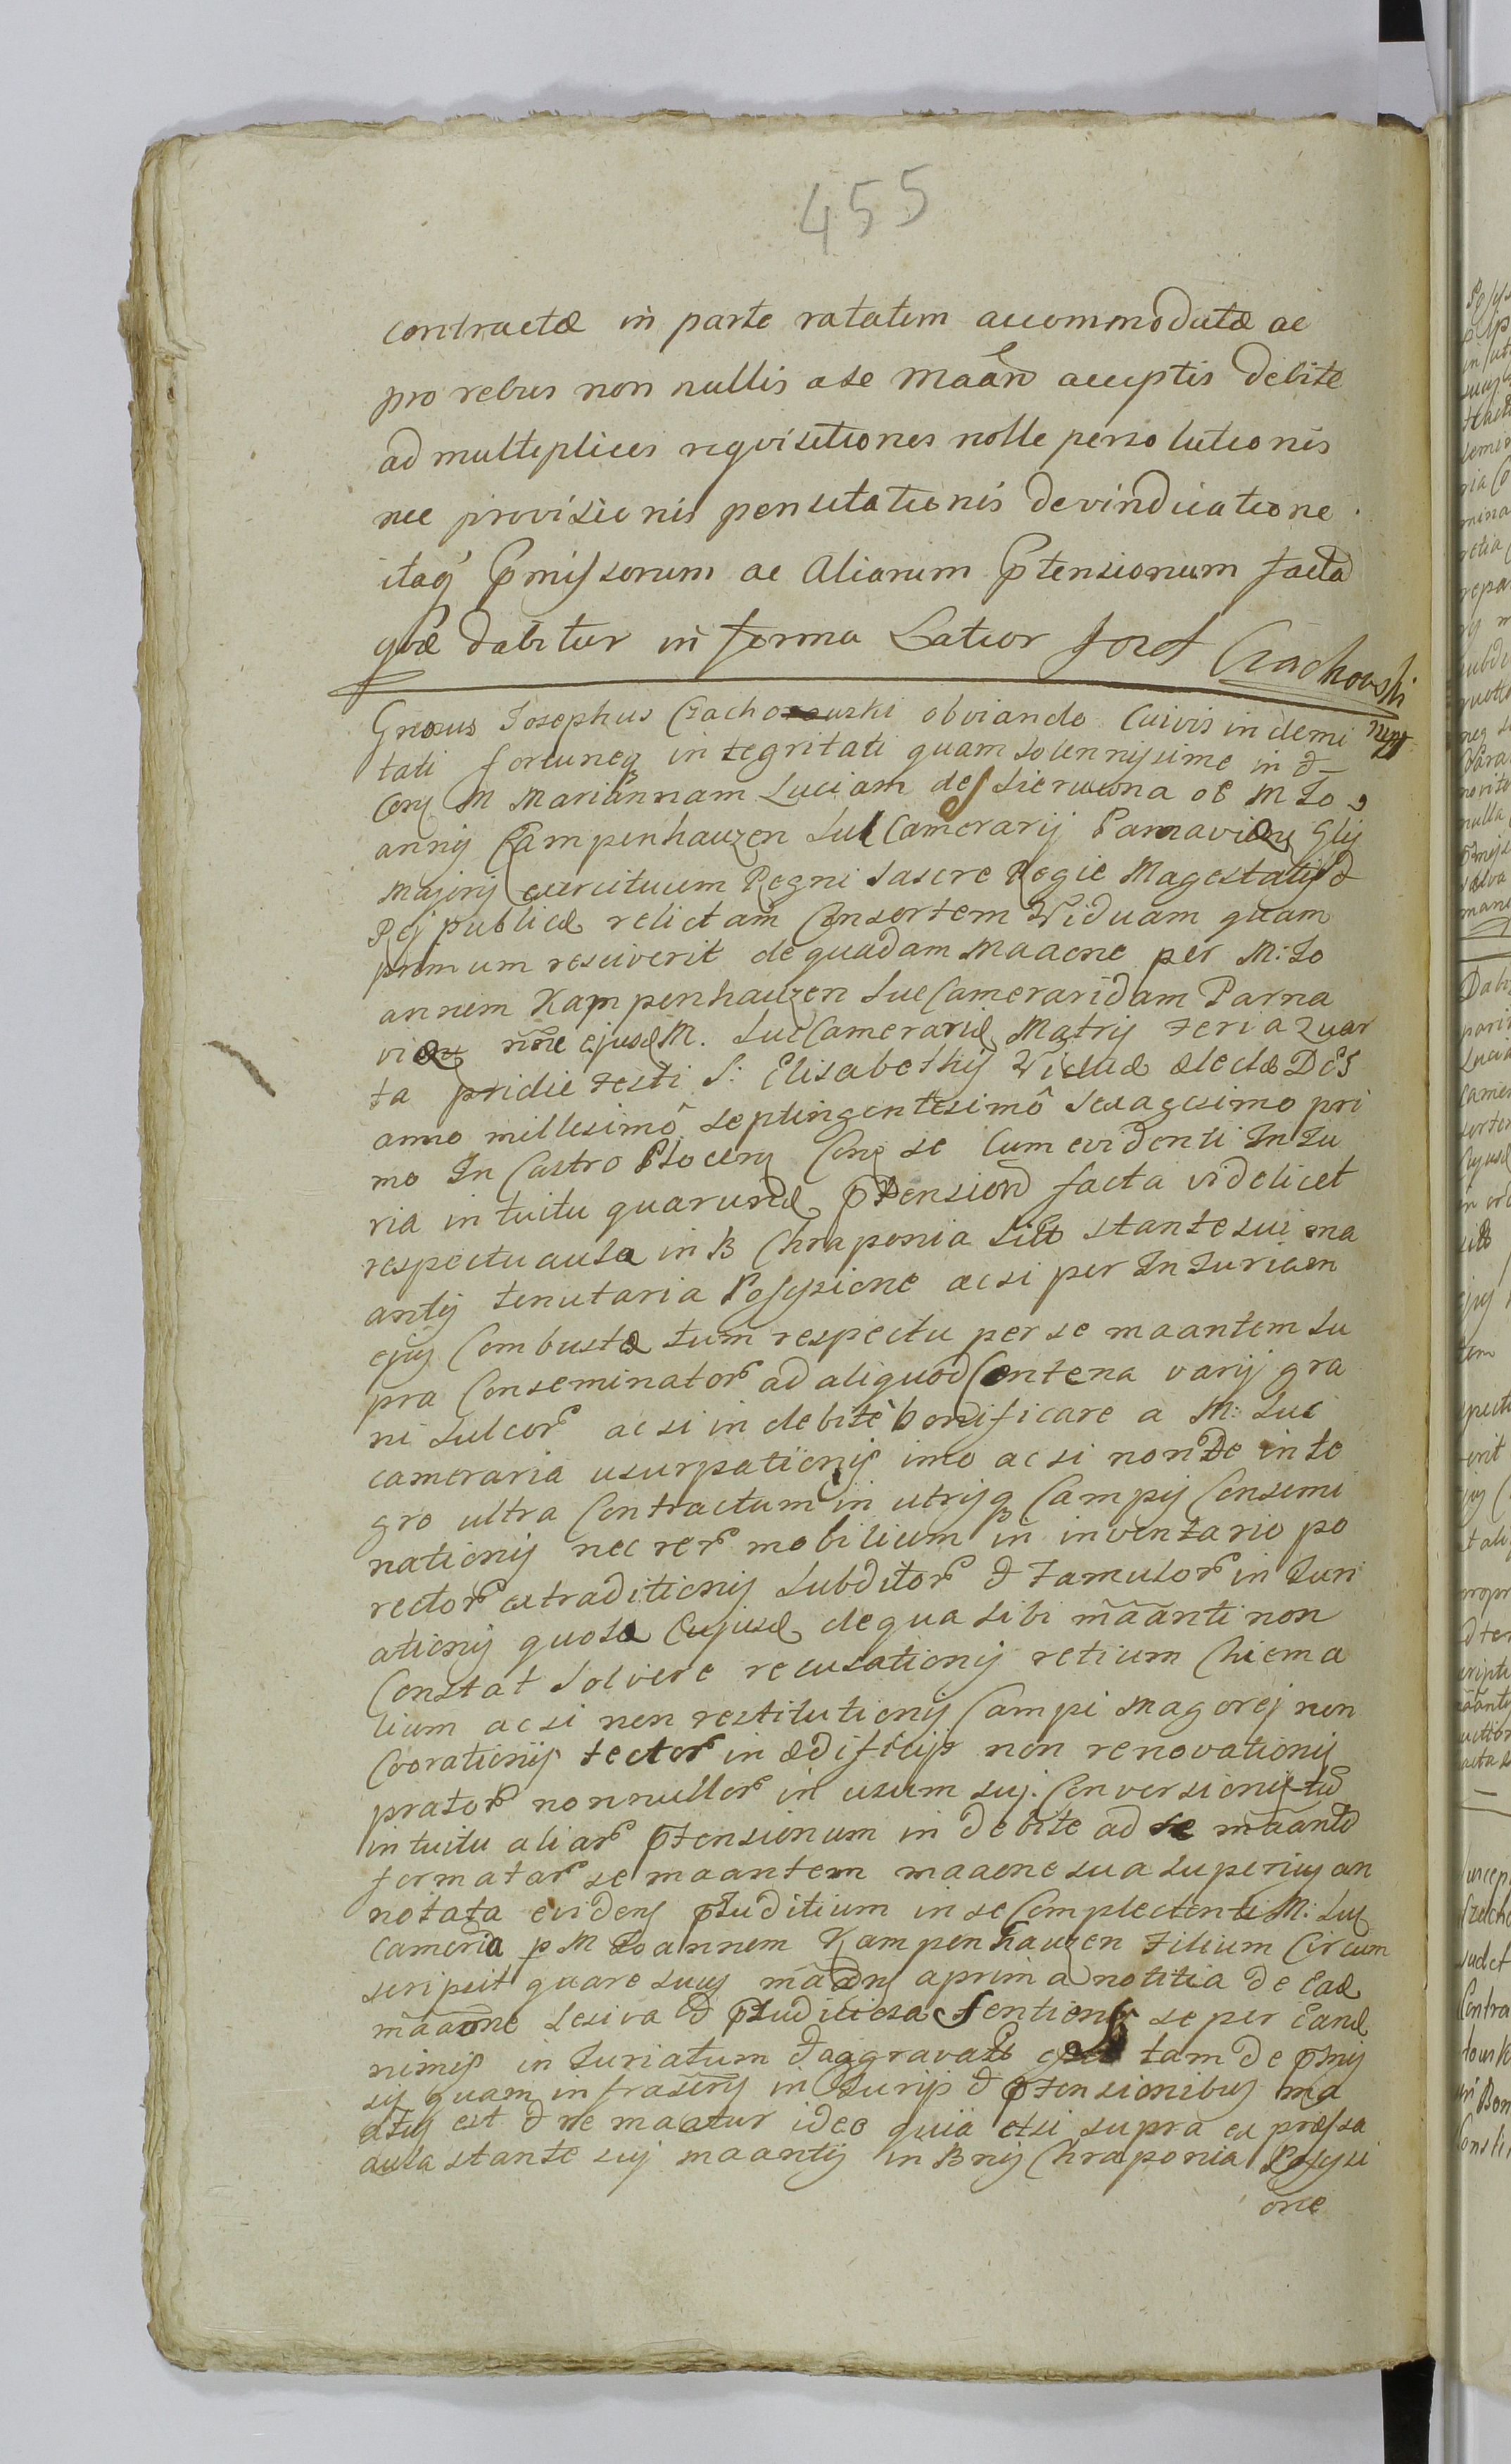 455
contractæ in parte ratatim accommodatæ ac
pro rebus non nullis a se Maãn acceptis debite
ad multiplices reqvisitiones nolle persolutionis
nec provisionis pensitationis devindicatione
itaq Pmissorum ac Aliarum Ptensionum facta
qvæ dabitur in forma Latior Jozef Czachowski
Gnosus Josephus Czachorowski obviando Cuivis indemi
tati fortuneq integritati quam solennissime in &
Conz M Mariannam Luciam de Sierwona ol M Jo
annis Campenhauzen Suc Camerarij Parnavien Glis
Majoris exercituum Regni Sascre Regie Magestatis &
Rej publicæ relictam Consortem Viduam quam
primum resciverit de quadam Maaone per M: Jo
annem Kampenhauzen Suc Cameraridam Parna
vien nne ejusd M. Suc Camerariæ Matris Feria Quar
ta pridie Festi S: Elisabethis Viduæ ælectæ Dei
anno millesimô septingentesimô sexagesimo pri
mo In Castro Plocen Conz se Cum evidenti Inju
ria intuitu quarund ptension facta videlicet
respectu aulæ in B Chraponia sub stante sui ma
antis tenutaria Possessione acsi per Injuriam
ejus Combustæ tum respectu per se maantem su
pra Conseminator ad aliquod Centena varij gra
ni sulcor acsi indebite bonificare a M: Suc
cameraria usurpationis imo acsi non De inte
gro ultra Contractum in utrisq Campis Consemi
nationis nec rer mobilium in inventario po
rector extraditionis subditor & Famulor in Juri
ationis quosa Cujusd de qua sibi mãanti non
Constat Solvere recusationis retium Chiema
lium acsi non restitutionis Campi Magoris non
Coorationis tector in ædificijs non renovationis
prator nonnullor in usum sui Conversionis tu
intuitu aliar ptensionum indebite ad se mãant
formatar se maantem maaone sua superius an
notata evidens pjuditium in se Complectenti M: Suc
Cameria p M Joannem Kampenhauzen Filium Circum
scripsit quare suus mãans a prima notitia de Ead
mãaone lesiva & pjuditiosa sentiens se per Eand
nimis in Juriatum & aggravatu tam de pmis
sis quam infrascris in Jurijs & ptensionibus ma
atus est & re maatur ideo quia etsi supra ex præssa
aula stante sui maantis in Bnis Chraponia Possessi
one